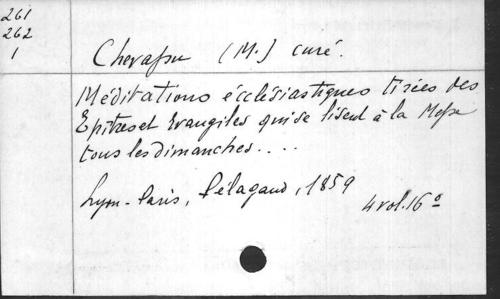 261
262
1
Chevassu (M.) curé.
Méditations écclésiastiques tirées des
Epitres et Evangiles qui se lisent à la Messe
tous les dimanches....
Lyon-Paris, Pélagaud, 1859
4 vol. 16°